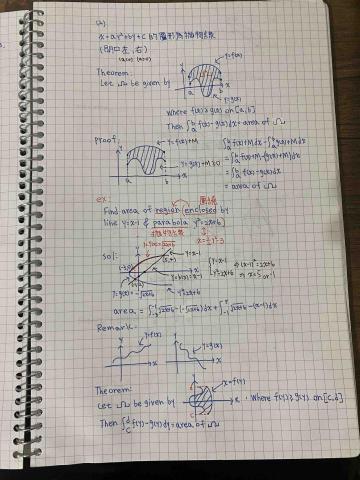 (2)
x=ay²+by+c 的圖形為拋物線
(開口左,右)
(a<0) (a>0)
Theorem:
Let Ω be given by
y=f(x)
y=g(x)
a b x
Where f(x)≥g(x) on [a,b]
Then ∫ₐᵇ f(x)-g(x)dx = area of Ω
Proof:
y=f(x)+M
y=g(x)+M≥0
a b x
∫ₐᵇ f(x)+M dx - ∫ₐᵇ g(x)+M dx
= ∫ₐᵇ f(x)+M-(g(x)+M)dx
= ∫ₐᵇ f(x)-g(x)dx
= area of Ω
ex:
Find area of region enclosed by
line y=x-1 & parabola y²=2x+6
拋物線
x=½y²-3
sol:
y=f(x)=√2x+6
y=x-1
y=h(x)=x-1
y=g(x)=-√2x+6
y²=2x+6
{y=x-1
{y²=2x+6
⇒ (x-1)²=2x+6
⇒ x=5 or -1
area = ∫₋₃⁻¹ √2x+6-(-√2x+6)dx + ∫₋₁⁵ √2x+6-(x-1)dx
Remark:
y y=f(x) x
y y=g(x) x
Theorem:
Let Ω be given by
x=f(y)
, Where f(y)≥g(y) on [c,d]
Then ∫꜀ᵈ f(y)-g(y)dy = area of Ω